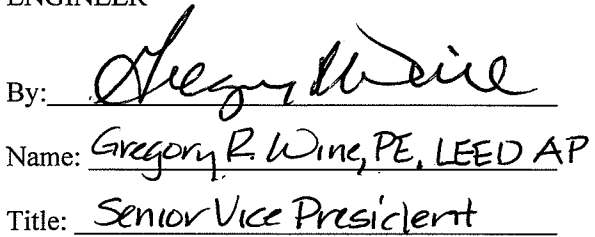 ENGINEER
By: Gregory R Wine
Name: Gregory R. Wine, PE, LEED AP
Title: Senior Vice President